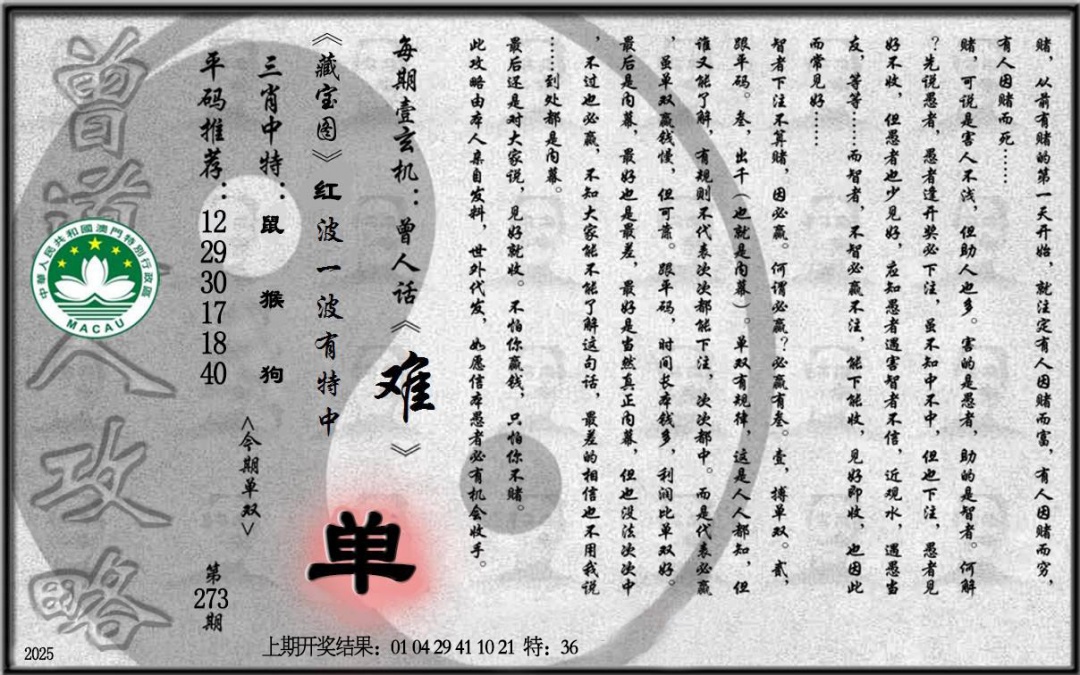 赌，从前有赌的第一天开始，就注定有人因赌而富，有人因赌而穷，
有人因赌而死……
赌，可说是害人不浅，但助人也多。害的是愚者，助的是智者。何解
？先说愚者，愚者逢开奖必下注，虽不知中不中，但也下注，愚者见
好不收，但愚者也少见好，应知愚者遇害智者不信，近观水，遇愚当
友，等等……而智者，不智必赢不注，能下能收，见好即收，也因此
而常见好……
智者下注不算赌，因必赢。何谓必赢？必赢有叁。壹，搏单双。贰，
跟平码。叁，出千（也就是内幕）。单双有规律，这是人人都知，但
谁又能了解，有规则不代表次次都能下注，次次都中。而是代表必赢
，虽单双赢钱慢，但可靠。跟平码，时间长本钱多，利润比单双好。
最后是内幕，最好也是最差，最好是当然真正内幕，但也没法次次中
，不过也必赢，不知大家能不能了解这句话，最差的相信也不用我说
……到处都是内幕。
最后还是对大家说，见好就收。不怕你赢钱，只怕你不赌。
此攻略由本人亲自发料，世外代发，如愿信本愚者必有机会收手。
每期壹玄机：曾人话《难》
《藏宝图》红波一波有特中
单
三肖中特：鼠 猴 狗
<今期单双>
平码推荐：12 29 30 17 18 40
第273期
曾道人攻略
中華人民共和國澳門特別行政區
MACAU
2025
上期开奖结果：01 04 29 41 10 21 特：36